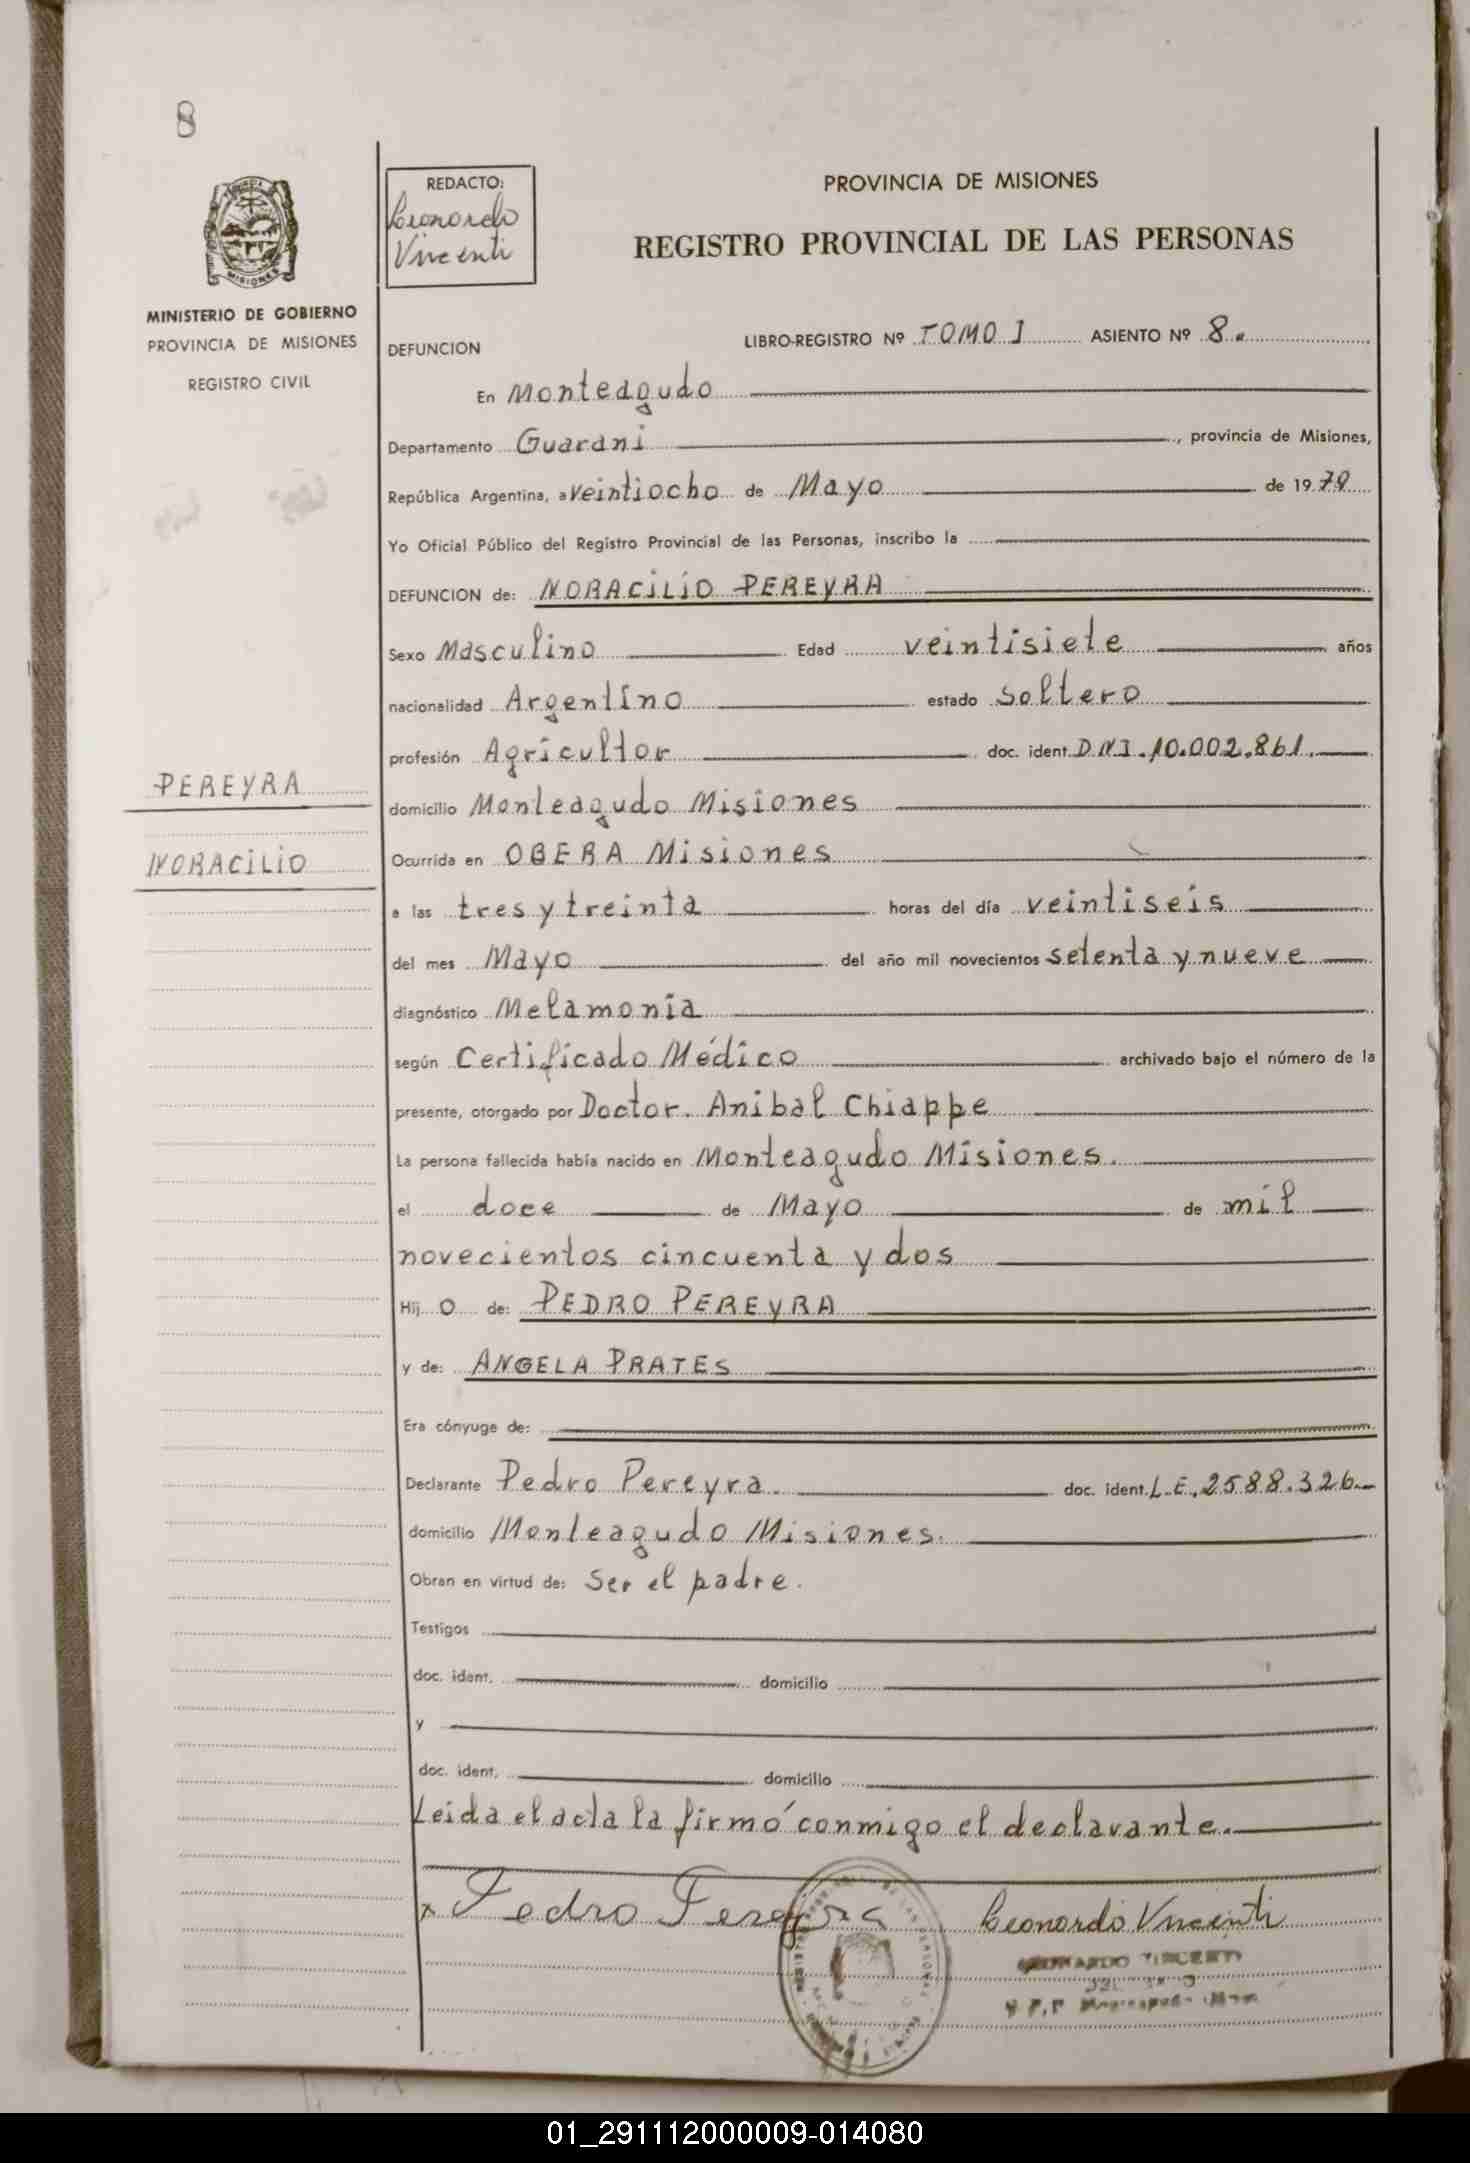 8
REDACTO:
Leonardo
Vincenti
PROVINCIA DE MISIONES
REGISTRO PROVINCIAL DE LAS PERSONAS
MISIONES
MINISTERIO DE GOBIERNO
PROVINCIA DE MISIONES
REGISTRO CIVIL
DEFUNCION
LIBRO-REGISTRO Nº TOMO I ASIENTO Nº 8.
En Monteagudo
Departamento Guarani, provincia de Misiones,
República Argentina, a veintiocho de Mayo de 1979
Yo Oficial Público del Registro Provincial de las Personas, inscribo la
DEFUNCION de: NORACILIO PEREYRA
Sexo Masculino Edad veintisiete años
nacionalidad Argentino estado Soltero
profesión Agricultor doc. ident. D.N.I. 10.002.861.
PEREYRA
domicilio Monteagudo Misiones
NORACILIO
Ocurrida en OBERA Misiones
a las tres y treinta horas del día veintiseis
del mes Mayo del año mil novecientos setenta y nueve
diagnóstico Melamonia
según Certificado Médico archivado bajo el número de la
presente, otorgado por Doctor. Anibal Chiappe
La persona fallecida había nacido en Monteagudo Misiones.
el doce de Mayo de mil
novecientos cincuenta y dos
Hij o de: PEDRO PEREYRA
y de: ANGELA PRATES
Era cónyuge de:
Declarante Pedro Pereyra. doc. ident. L.E. 2588.326
domicilio Monteagudo Misiones.
Obran en virtud de: Ser el padre.
Testigos
doc. ident. domicilio
y
doc. ident. domicilio
Leida el acta la firmó conmigo el declarante.
x Pedro Pereyra Leonardo Vincenti
LEONARDO VINCENTI
01_291112000009-014080